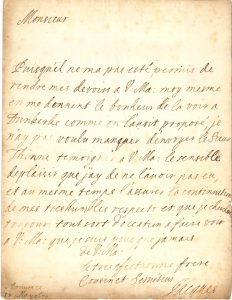 Monsieur
Puisqu'il ne m'a pas esté permis de
rendre mes devoirs a V. Ma: moy mesme
en me donnant le bonheur de la voir a
Dunkerke comme on l'avoit proposé, je
n'ay pas voulu manquer d'envoyer le Sieur
Thinne temoigner a V. Ma: le sensible
deplaisir que j'ay de ne l'avoir pas eu,
et au mesme temps l'assurer la continuation
de mes treshumbles respects et que je
toujours tout sort d'occasion a faire voir
a V. Ma: que je suis plus que jamais
de V. Ma:
le tres affectionné frere
Cousin et Serviteur
Jacques